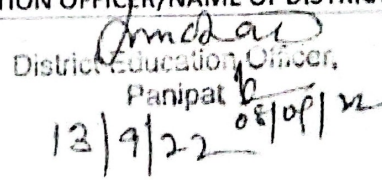 ION OFFICER/NAME OF DISTRI
District Education Officer,
Panipat
08/09/22
13/9/22